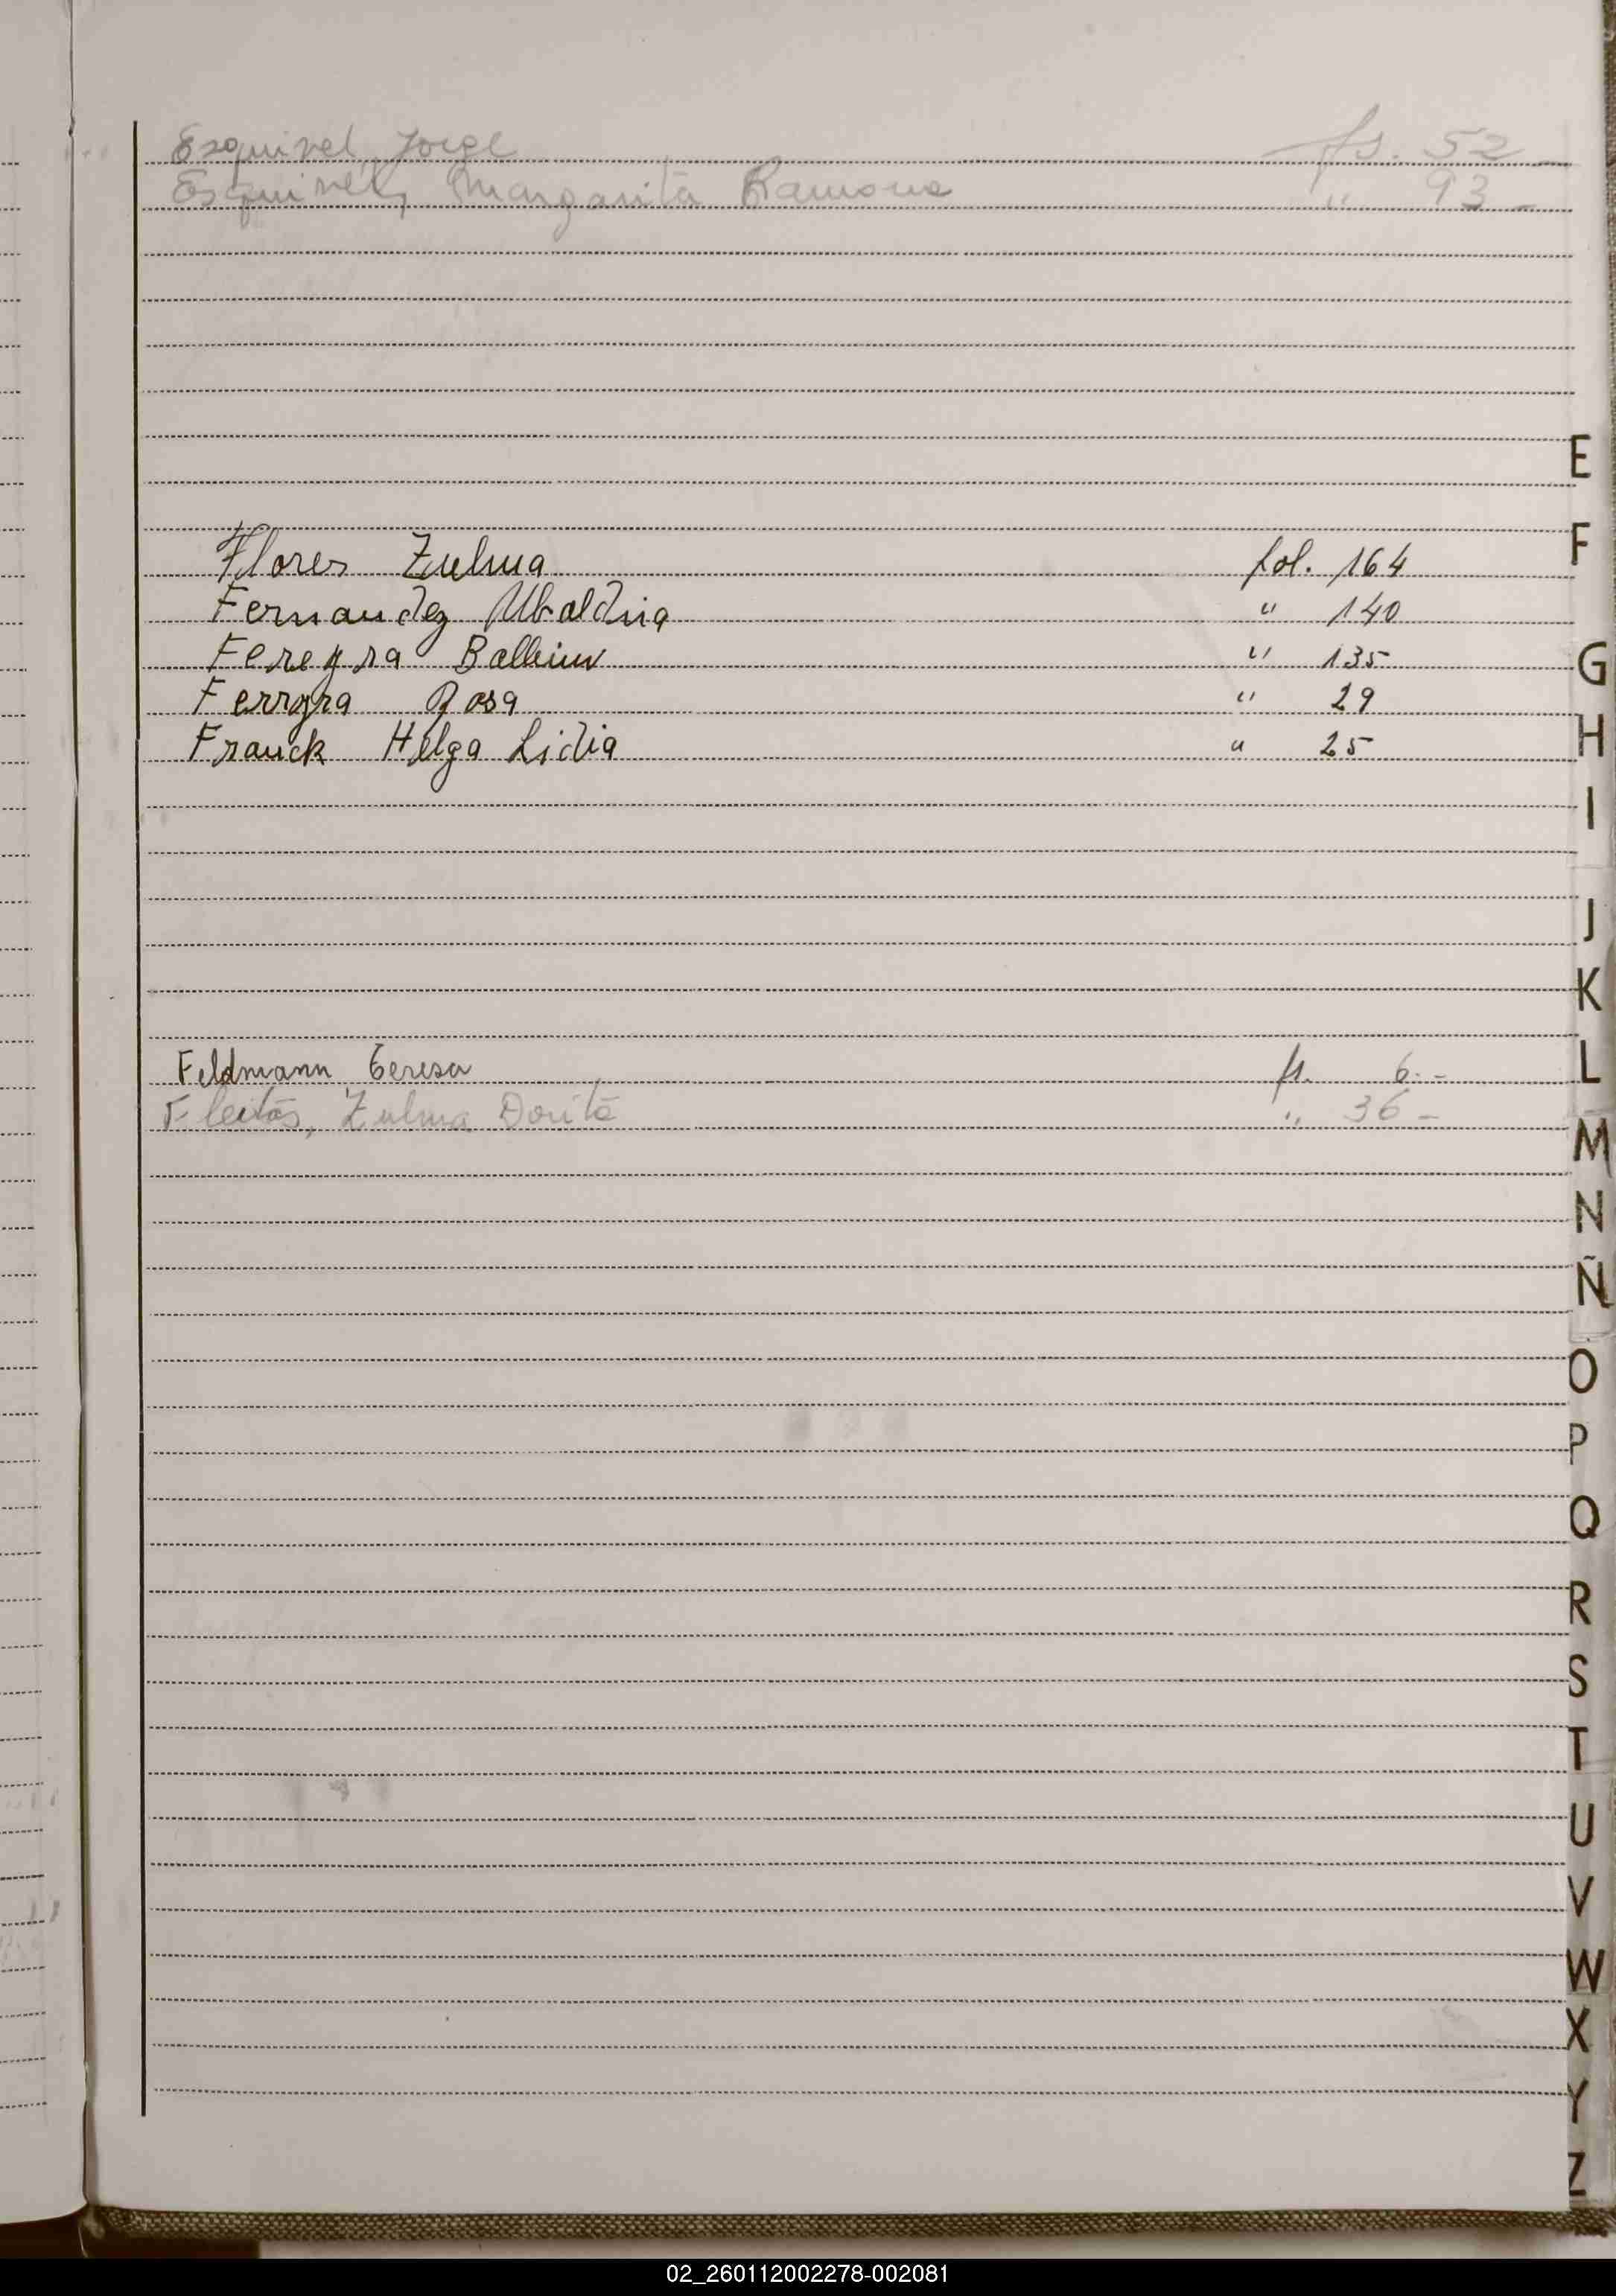 Esquivel, Jorge fs. 52 -
Esquivel, Margarita Ramona " 93 -
E
F
Flores Zulma fol. 164
Fernandez Ubaldina " 140
Fereyra " 135
G
Ferryra Rosa " 29
H
Franck Helga Lidia " 25
I
J
K
L
Feldmann Teresa fs. 6. -
Fleitas, Zulma Dorita " 36 -
M
N
Ñ
O
P
Q
R
S
T
U
V
W
X
Y
Z
02_260112002278-002081